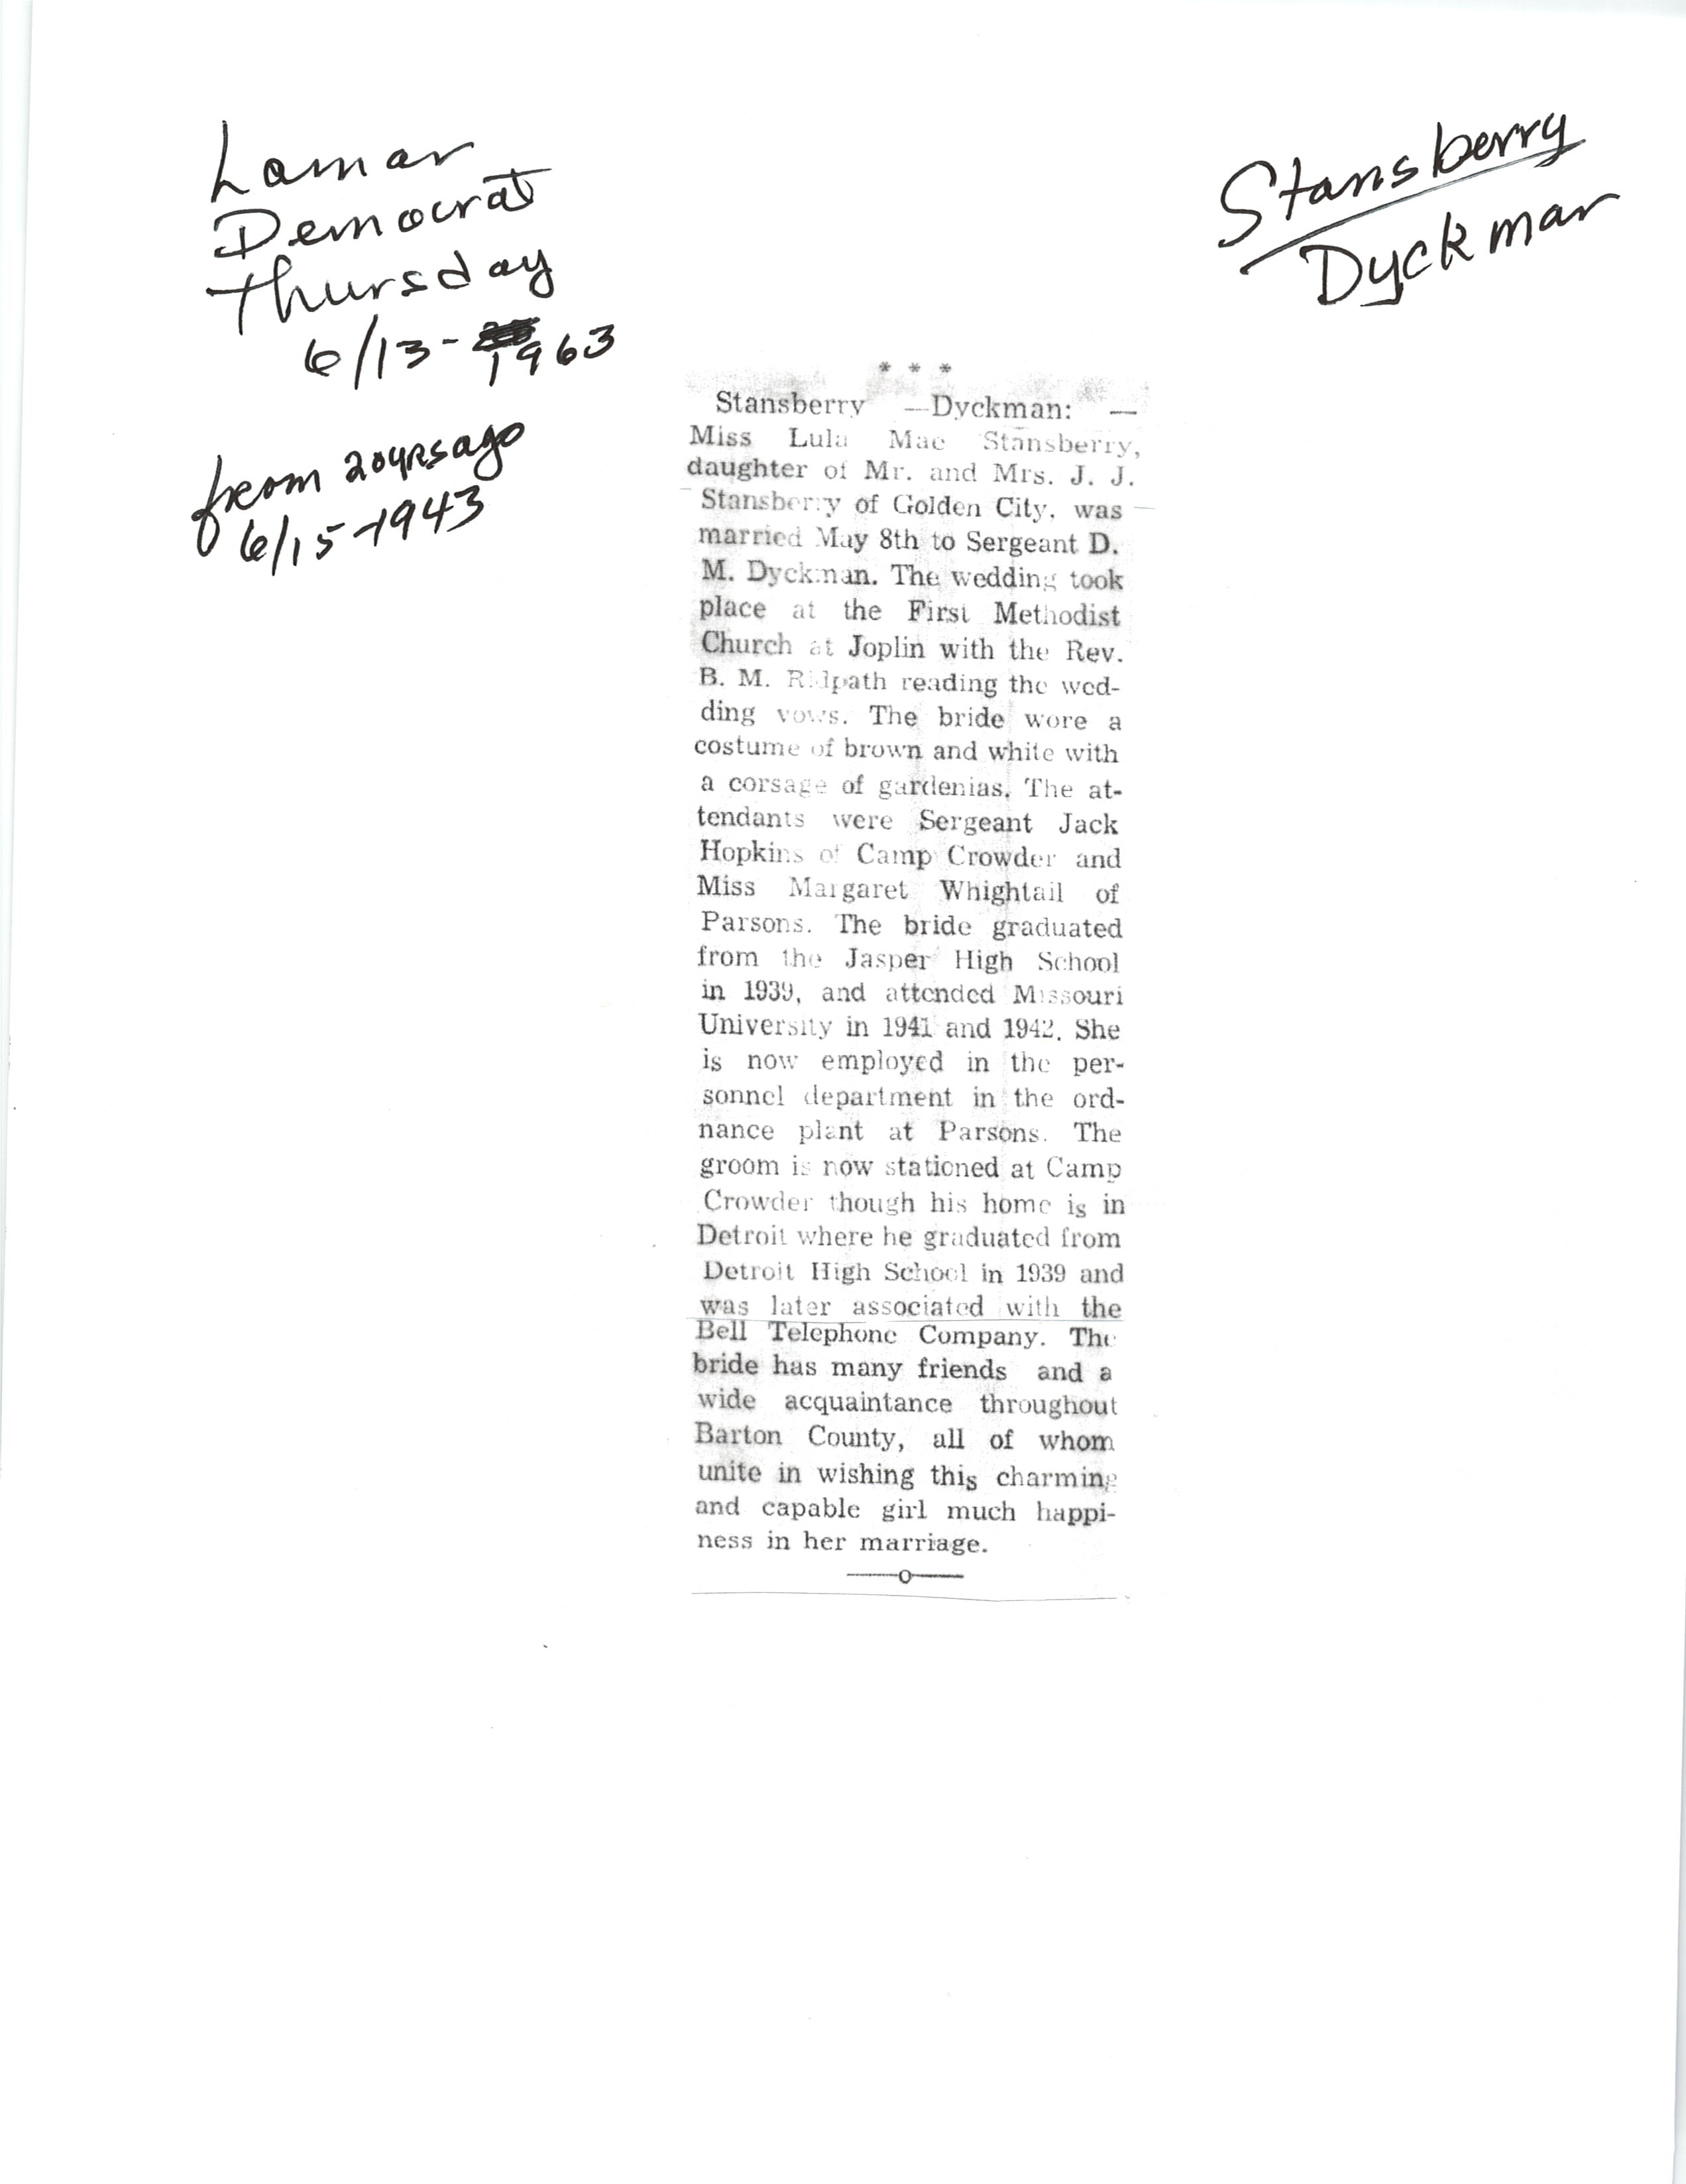 Lamar
Democrat
Thursday
6/13-1963
from 20 yrs ago
6/15-1943
Stansberry
Dyckman
* * *
Stansberry —Dyckman: —
Miss Lula Mae Stansberry,
daughter of Mr. and Mrs. J. J.
Stansberry of Golden City, was
married May 8th to Sergeant D.
M. Dyckman. The wedding took
place at the First Methodist
Church at Joplin with the Rev.
B. M. Ridpath reading the wed-
ding vows. The bride wore a
costume of brown and white with
a corsage of gardenias. The at-
tendants were Sergeant Jack
Hopkins of Camp Crowder and
Miss Margaret Whightail of
Parsons. The bride graduated
from the Jasper High School
in 1939, and attended Missouri
University in 1941 and 1942. She
is now employed in the per-
sonnel department in the ord-
nance plant at Parsons. The
groom is now stationed at Camp
Crowder though his home is in
Detroit where he graduated from
Detroit High School in 1939 and
was later associated with the
Bell Telephone Company. The
bride has many friends and a
wide acquaintance throughout
Barton County, all of whom
unite in wishing this charming
and capable girl much happi-
ness in her marriage.